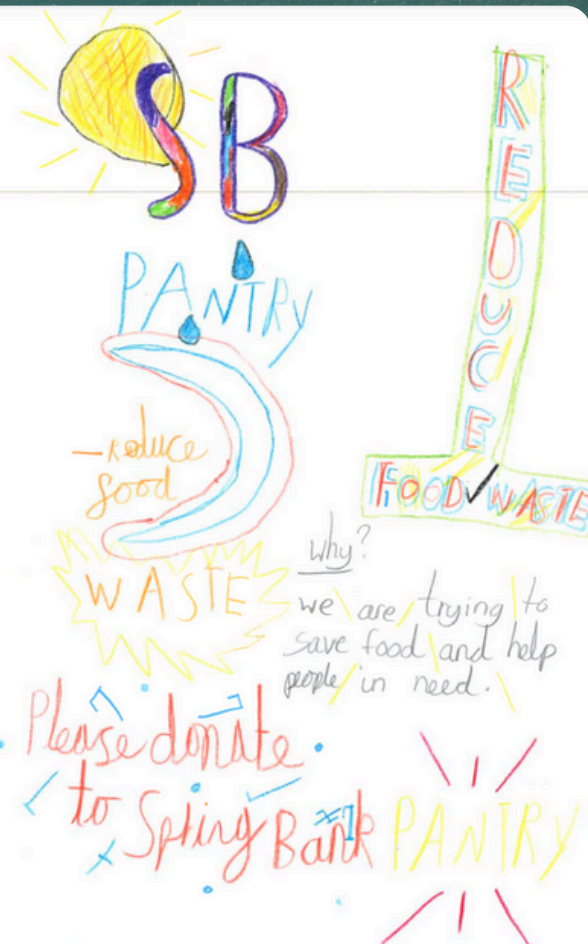 SB
PANTRY
- Reduce
food
WASTE
REDUCE
FOOD WASTE
why?
we are trying to
save food and help
people in need.
Please donate
to Spring Bank PANTRY